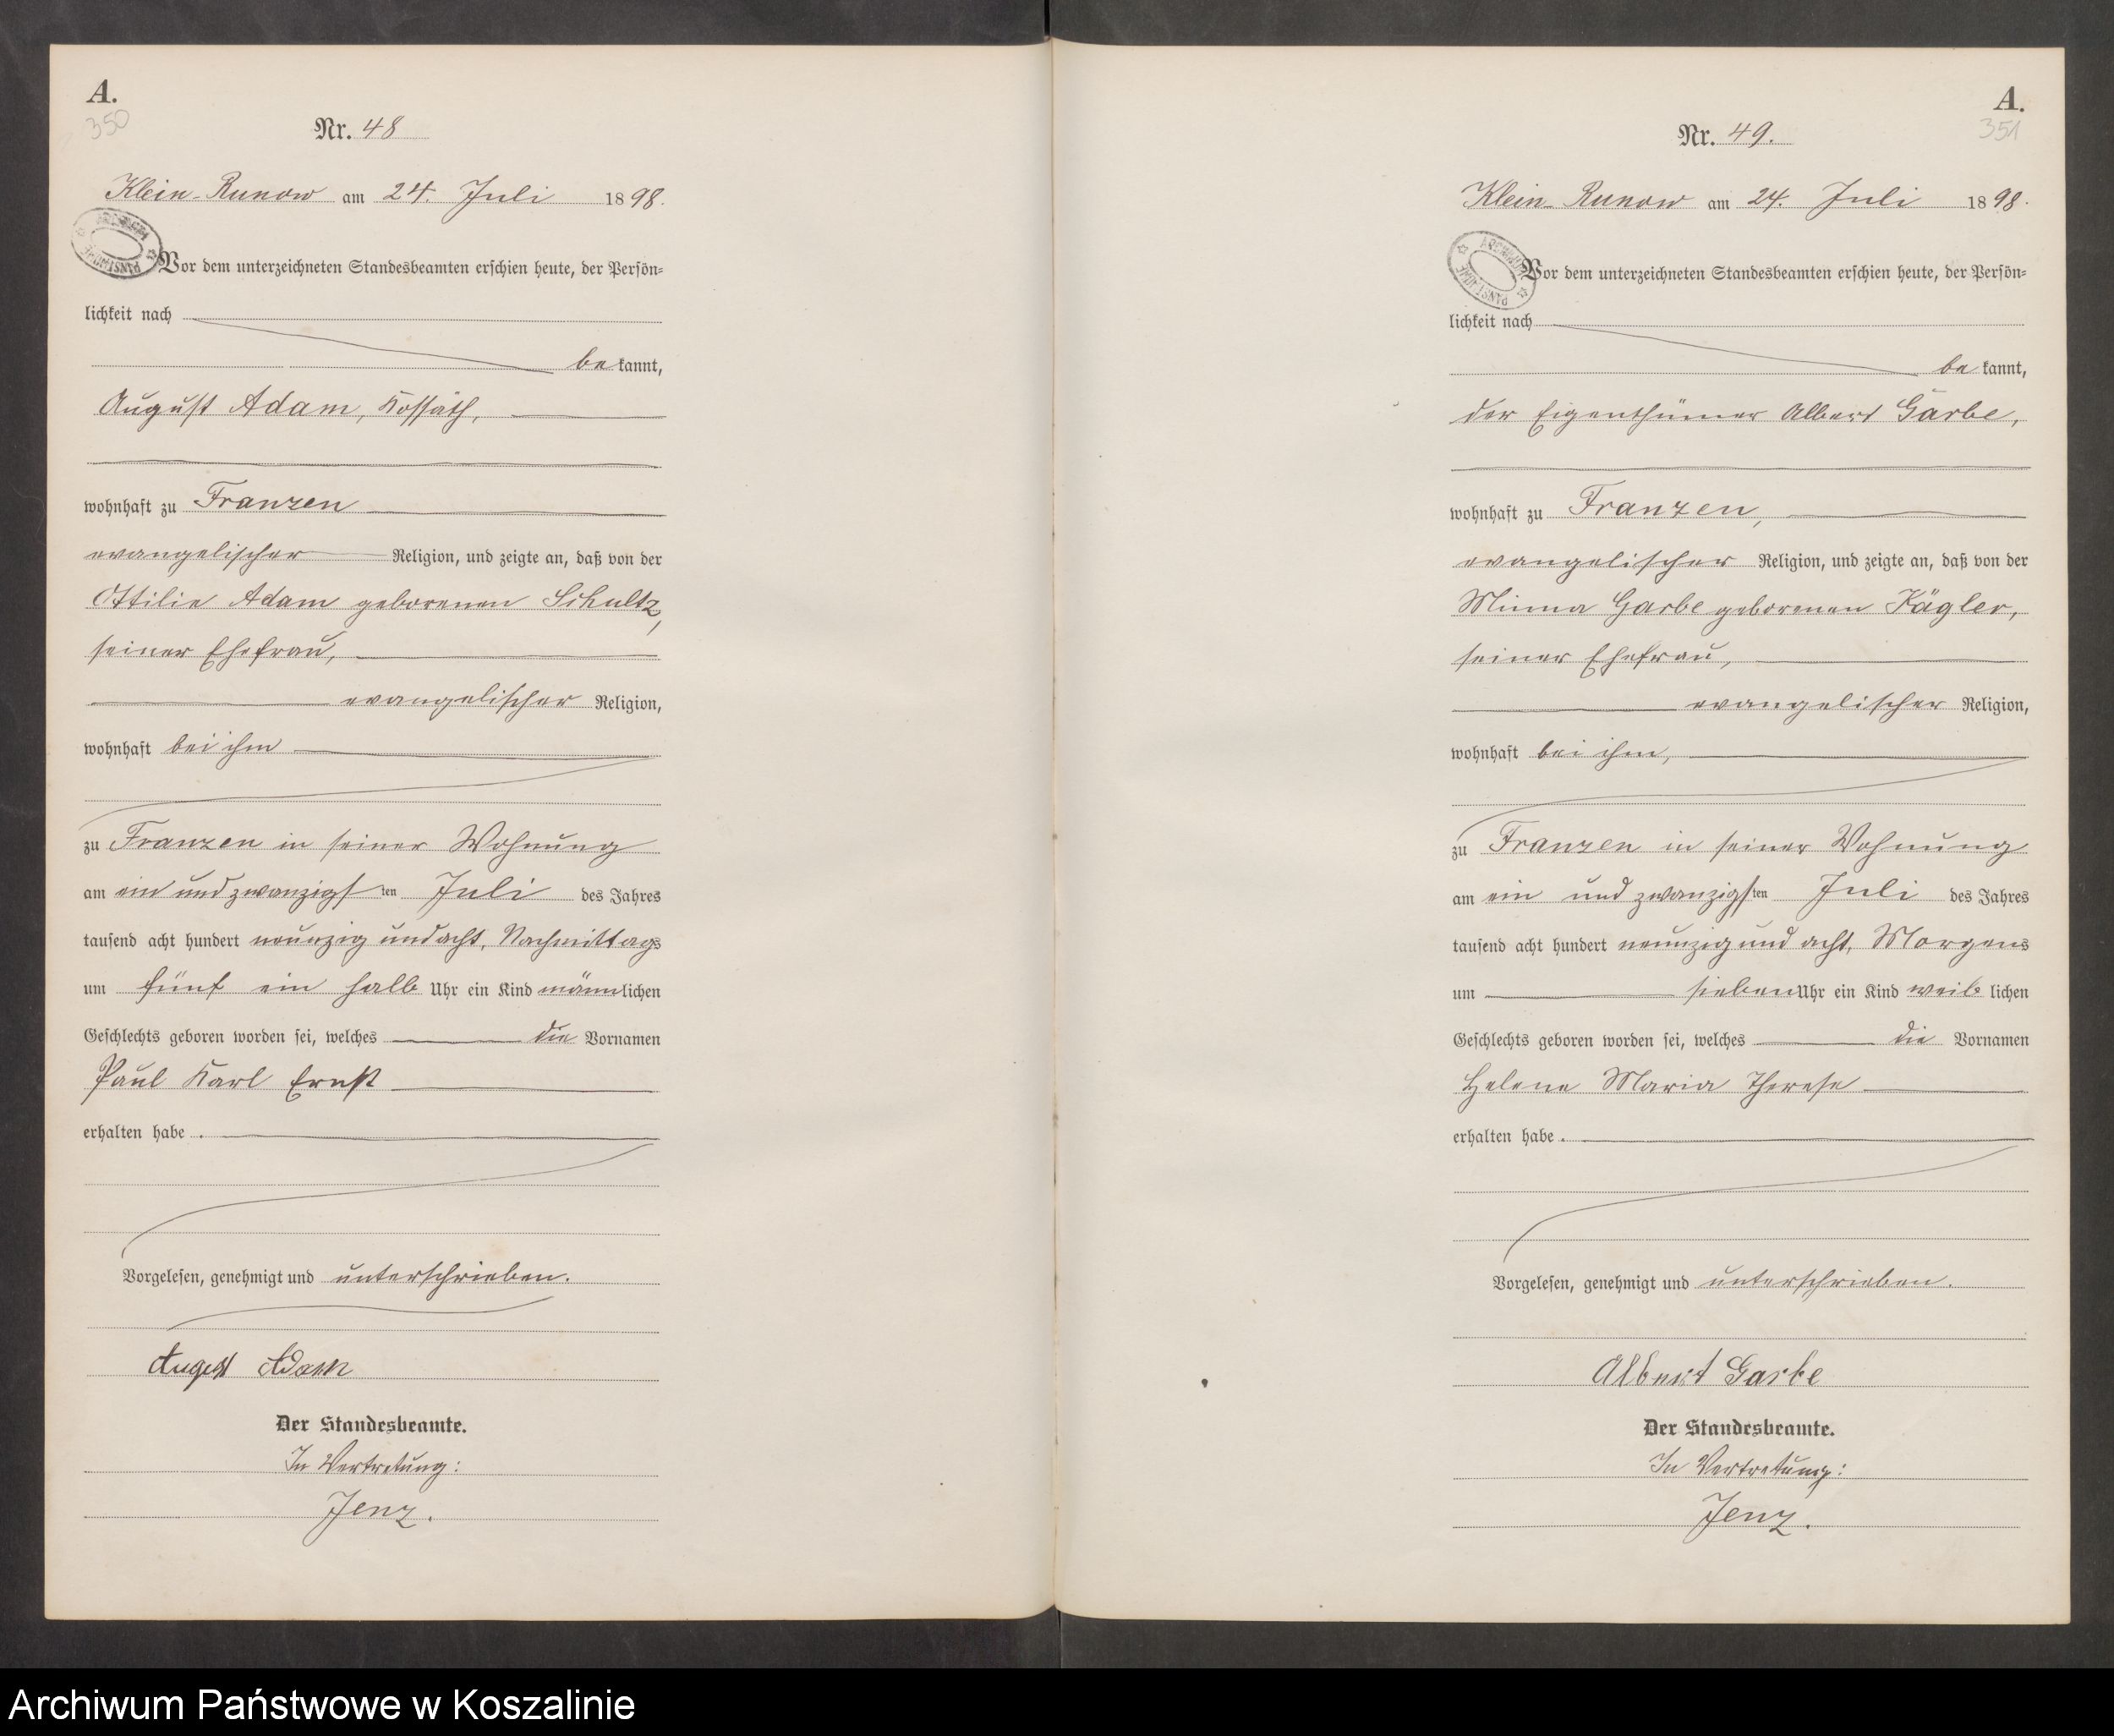 A.
350
Nr. 48
Klein-Runow am 24. Juli 1898.
Vor dem unterzeichneten Standesbeamten erschien heute, der Persön=
lichkeit nach
bekannt,
August Adam, Kossäth,
wohnhaft zu Franzen
evangelischer Religion, und zeigte an, daß von der
Ottilie Adam geborenen Schultz,
seiner Ehefrau,
evangelischer Religion,
wohnhaft bei ihm
zu Franzen in seiner Wohnung
am ein und zwanzigsten Juli des Jahres
tausend acht hundert neunzig und acht, Nachmittags
um fünf ein halb Uhr ein Kind männlichen
Geschlechts geboren worden sei, welches die Vornamen
Paul Karl Ernst
erhalten habe.
Vorgelesen, genehmigt und unterschrieben.
August Adam
Der Standesbeamte.
In Vertretung:
Jenz.
A.
351
Nr. 49.
Klein-Runow am 24. Juli 1898.
ARCHIWUM PAŃSTWOWE
Vor dem unterzeichneten Standesbeamten erschien heute, der Persön=
lichkeit nach
bekannt,
der Eigenthümer Albert Garbe,
wohnhaft zu Franzen,
evangelischer Religion, und zeigte an, daß von der
Minna Garbe geborenen Kägler,
seiner Ehefrau,
evangelischer Religion,
wohnhaft bei ihm,
zu Franzen in seiner Wohnung
am ein und zwanzigsten Juli des Jahres
tausend acht hundert neunzig und acht, Morgens
um sieben Uhr ein Kind weiblichen
Geschlechts geboren worden sei, welches die Vornamen
Helene Maria Therese
erhalten habe.
Vorgelesen, genehmigt und unterschrieben.
Albert Garbe
Der Standesbeamte.
In Vertretung:
Jenz.
Archiwum Państwowe w Koszalinie